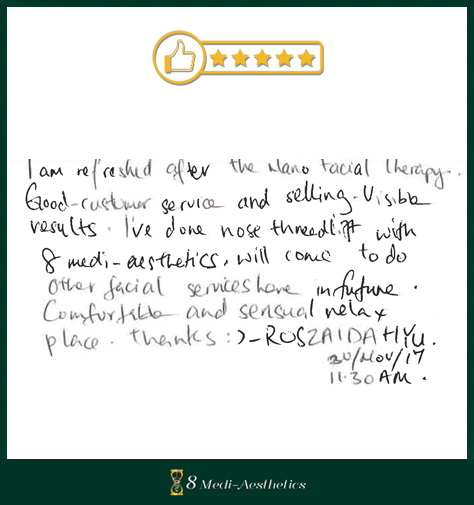 I am refreshed after the Nano Facial Therapy.
Good customer service and selling. Visible
results. I've done nose threadlift with
8 medi-aesthetics, will come to do
other facial services here in future.
Comfortable and sensual relax
place. thanks :)- ROSZAIDAHYU.
30/Nov/17
11.30 AM.
8 Medi-Aesthetics